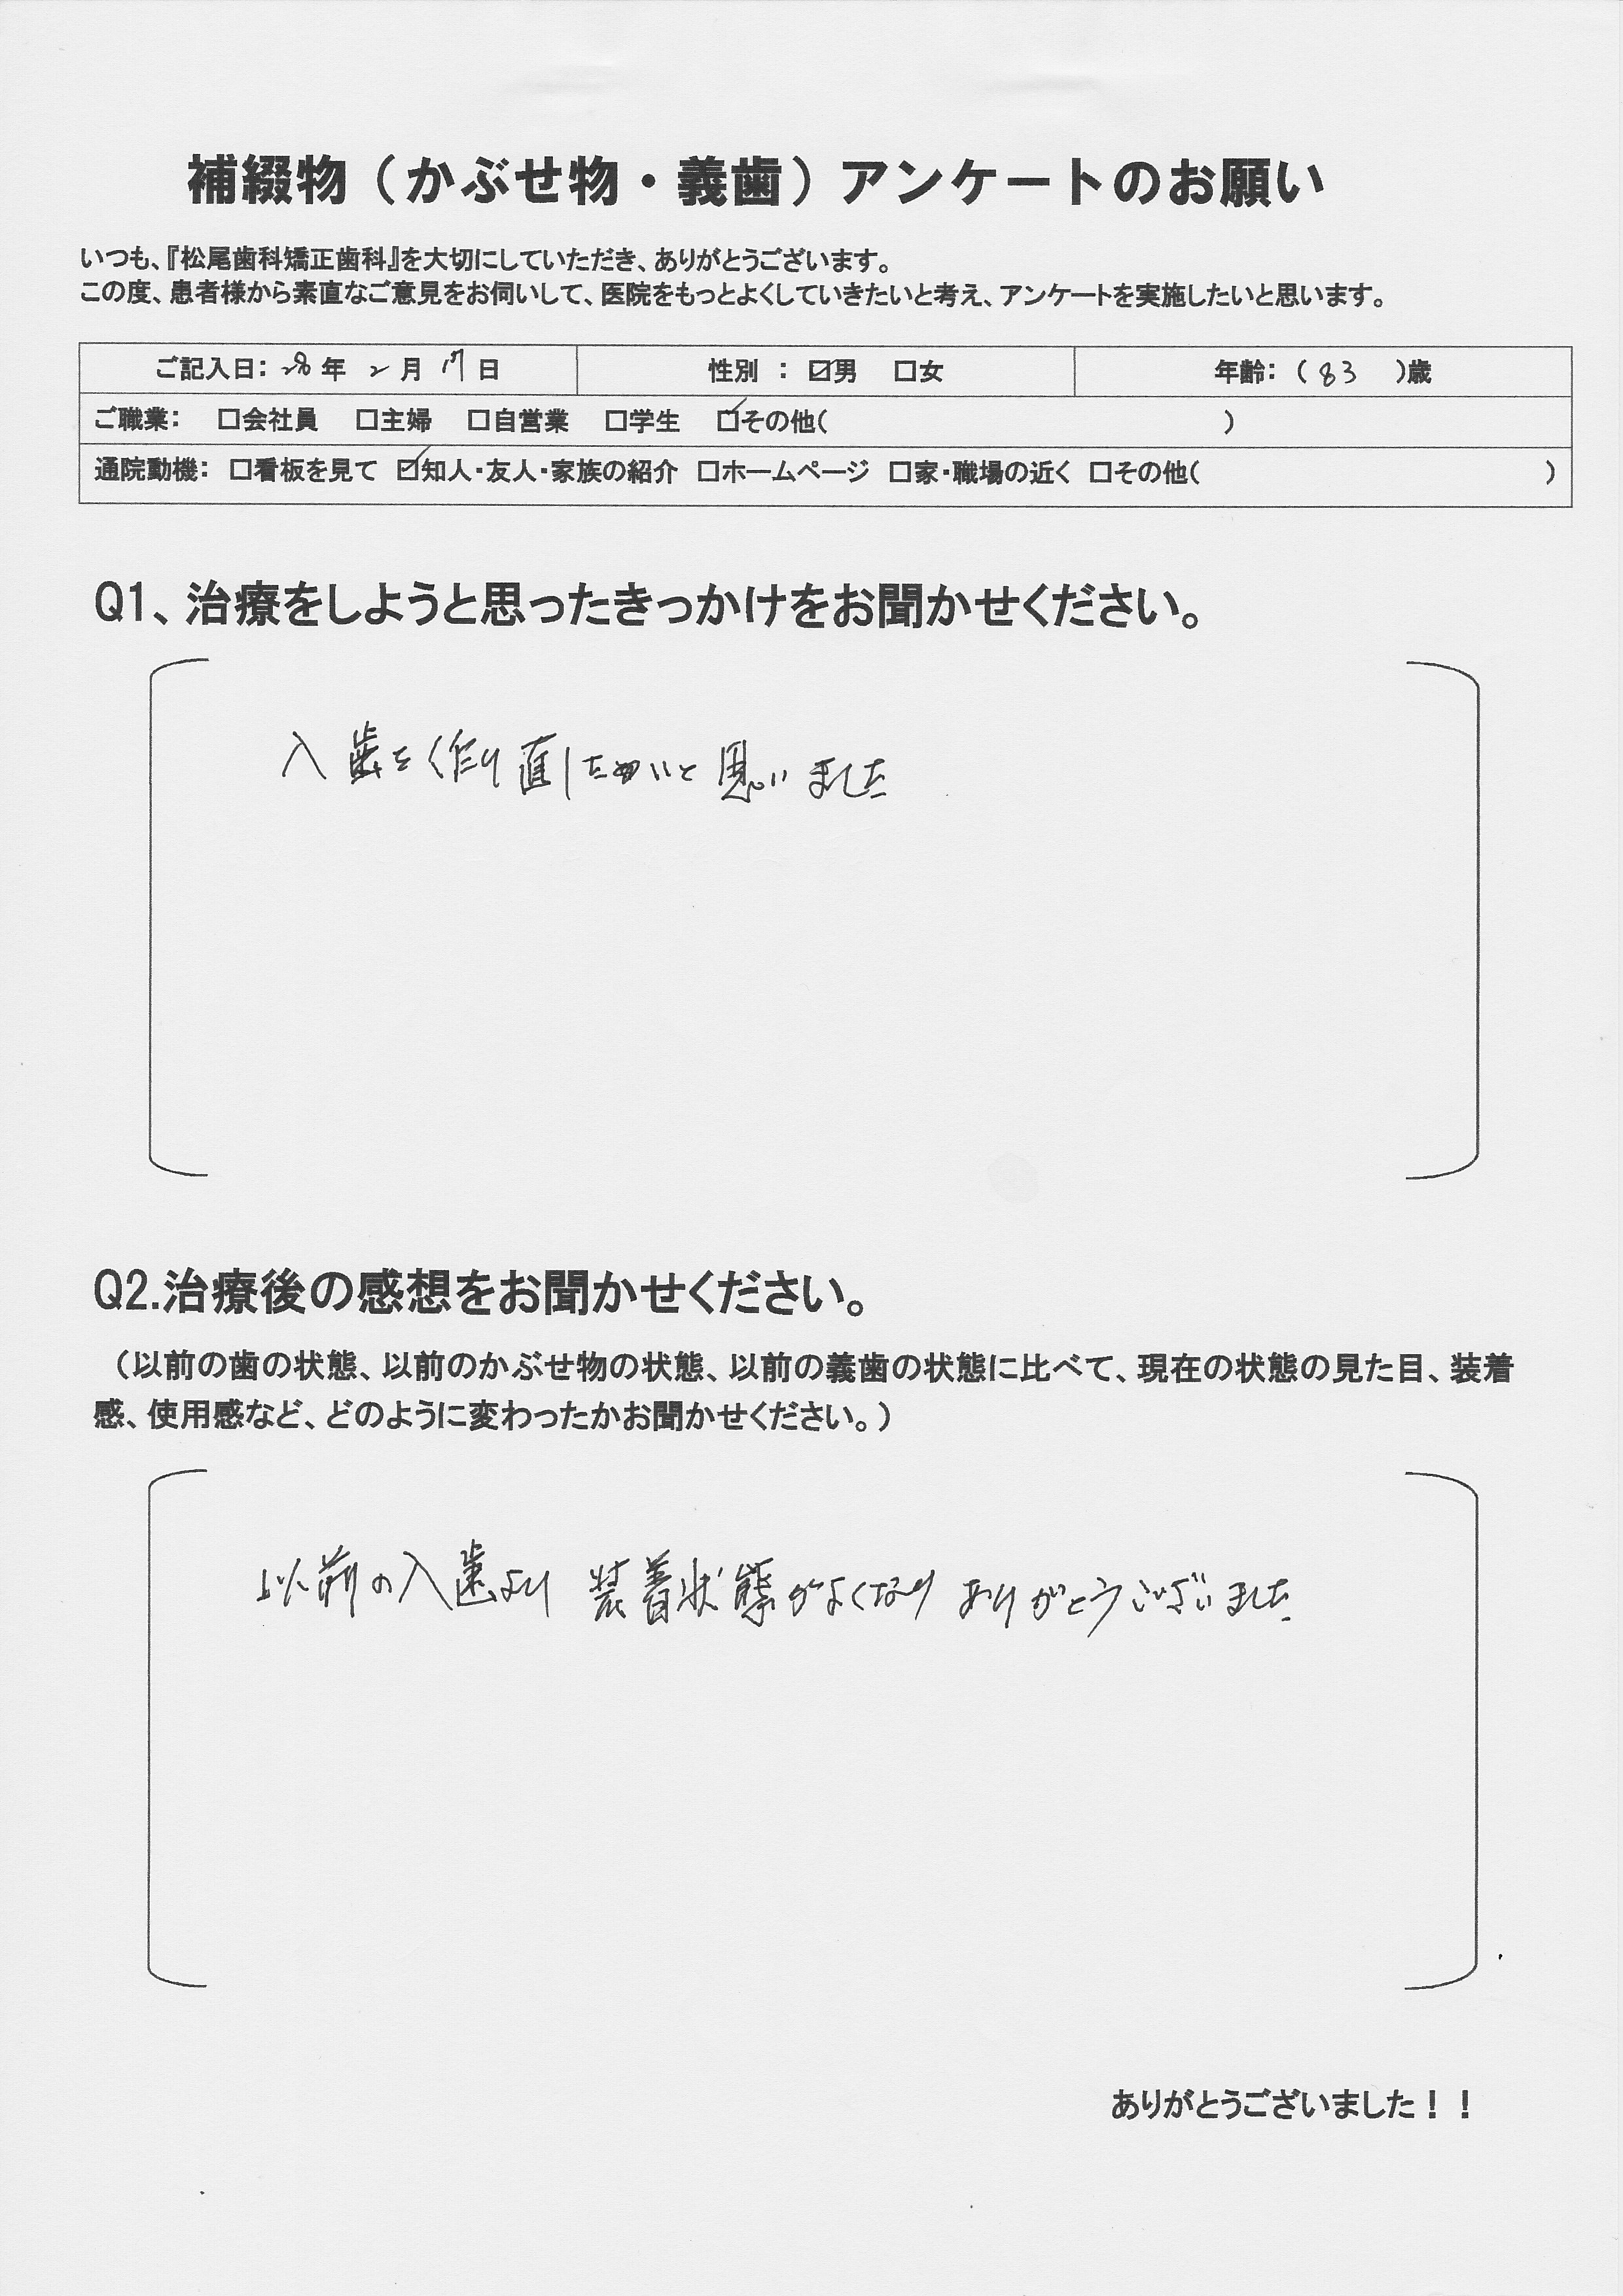 補綴物（かぶせ物・義歯）アンケートのお願い
いつも、『松尾歯科矯正歯科』を大切にしていただき、ありがとうございます。
この度、患者様から素直なご意見をお伺いして、医院をもっとよくしていきたいと考え、アンケートを実施したいと思います。
ご記入日： 28 年 2 月 17 日 性別 ： ☑男 □女 年齢：（ 83 ）歳
ご職業： □会社員 □主婦 □自営業 □学生 ☑その他（ ）
通院動機： □看板を見て ☑知人・友人・家族の紹介 □ホームページ □家・職場の近く □その他（ ）
Q1、治療をしようと思ったきっかけをお聞かせください。
入歯を作り直したいと思いました
Q2.治療後の感想をお聞かせください。
（以前の歯の状態、以前のかぶせ物の状態、以前の義歯の状態に比べて、現在の状態の見た目、装着
感、使用感など、どのように変わったかお聞かせください。）
以前の入歯より 装着状態がよくなり ありがとうございました
ありがとうございました！！